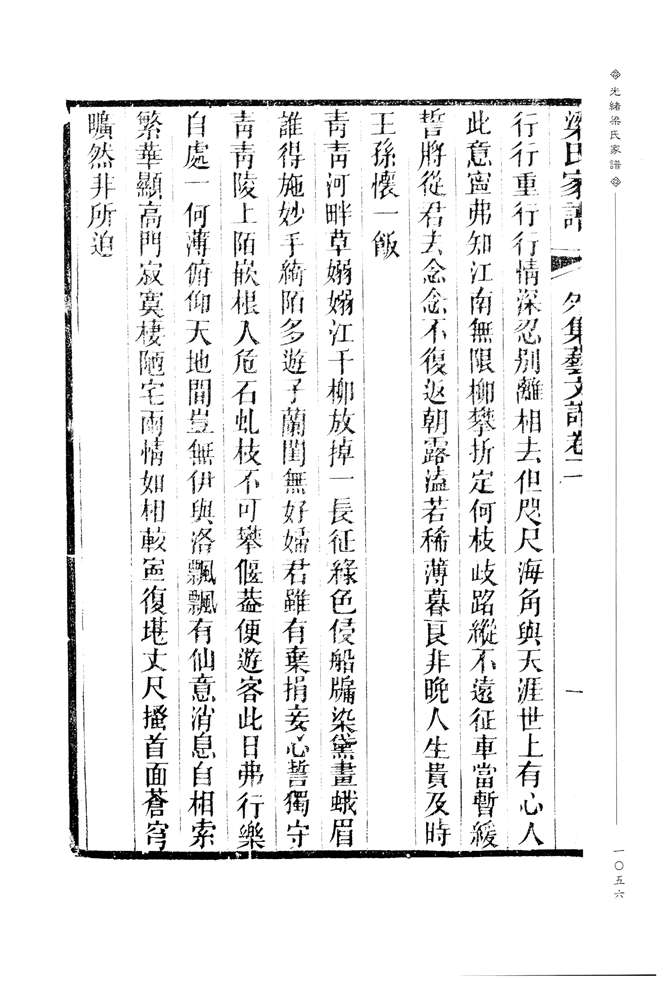 光緒梁氏家譜
一〇五六
梁氏家譜 外集藝文譜卷二 一
行行重行行情深忍別離相去但咫尺海角與天涯世上有心人
此意寗弗知江南無限柳攀折定何枝歧路縱不遠征車當暫緩
誓將從君去念念不復返朝露溘若稀薄暮良非晚人生貴及時
王孫懷一飯
靑靑河畔草嫋嫋江干柳放掉一長征綠色侵船牖染黛畫蛾眉
誰得施妙手綺陌多遊子蘭閨無好婦君雖有棄捐妾心誓獨守
靑靑陵上陌嵌根人危石虬枝不可攀偃葢便遊客此日弗行樂
自處一何薄俯仰天地間豈無伊與洛飄飄有仙意消息自相索
繁華顯高門寂寞棲陋宅兩情如相較寗復堪丈尺搔首面蒼穹
曠然非所迫